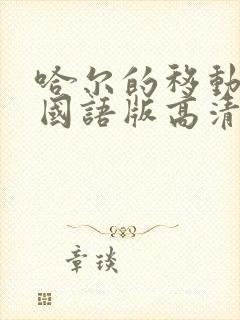 哈尔的移動
國語版高清
章琰